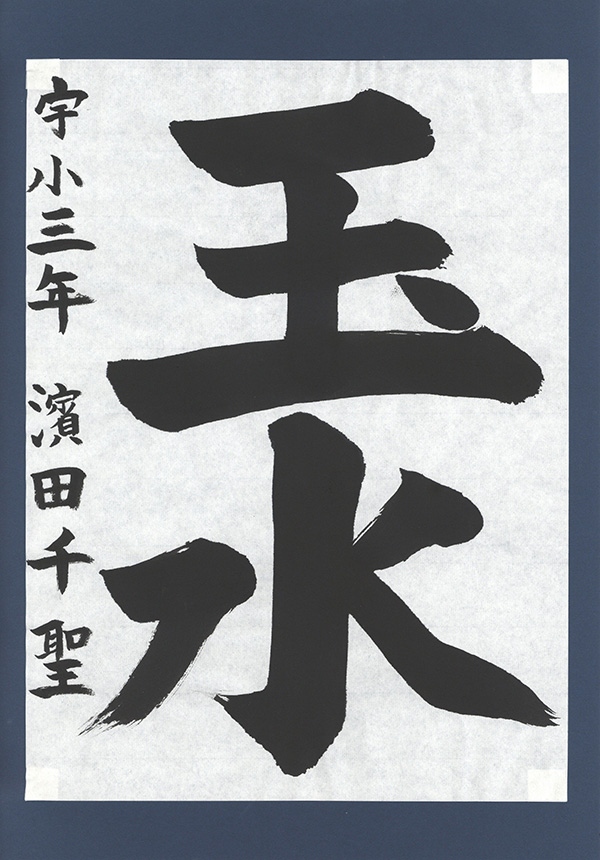 玉水
宇小三年 濱田千聖